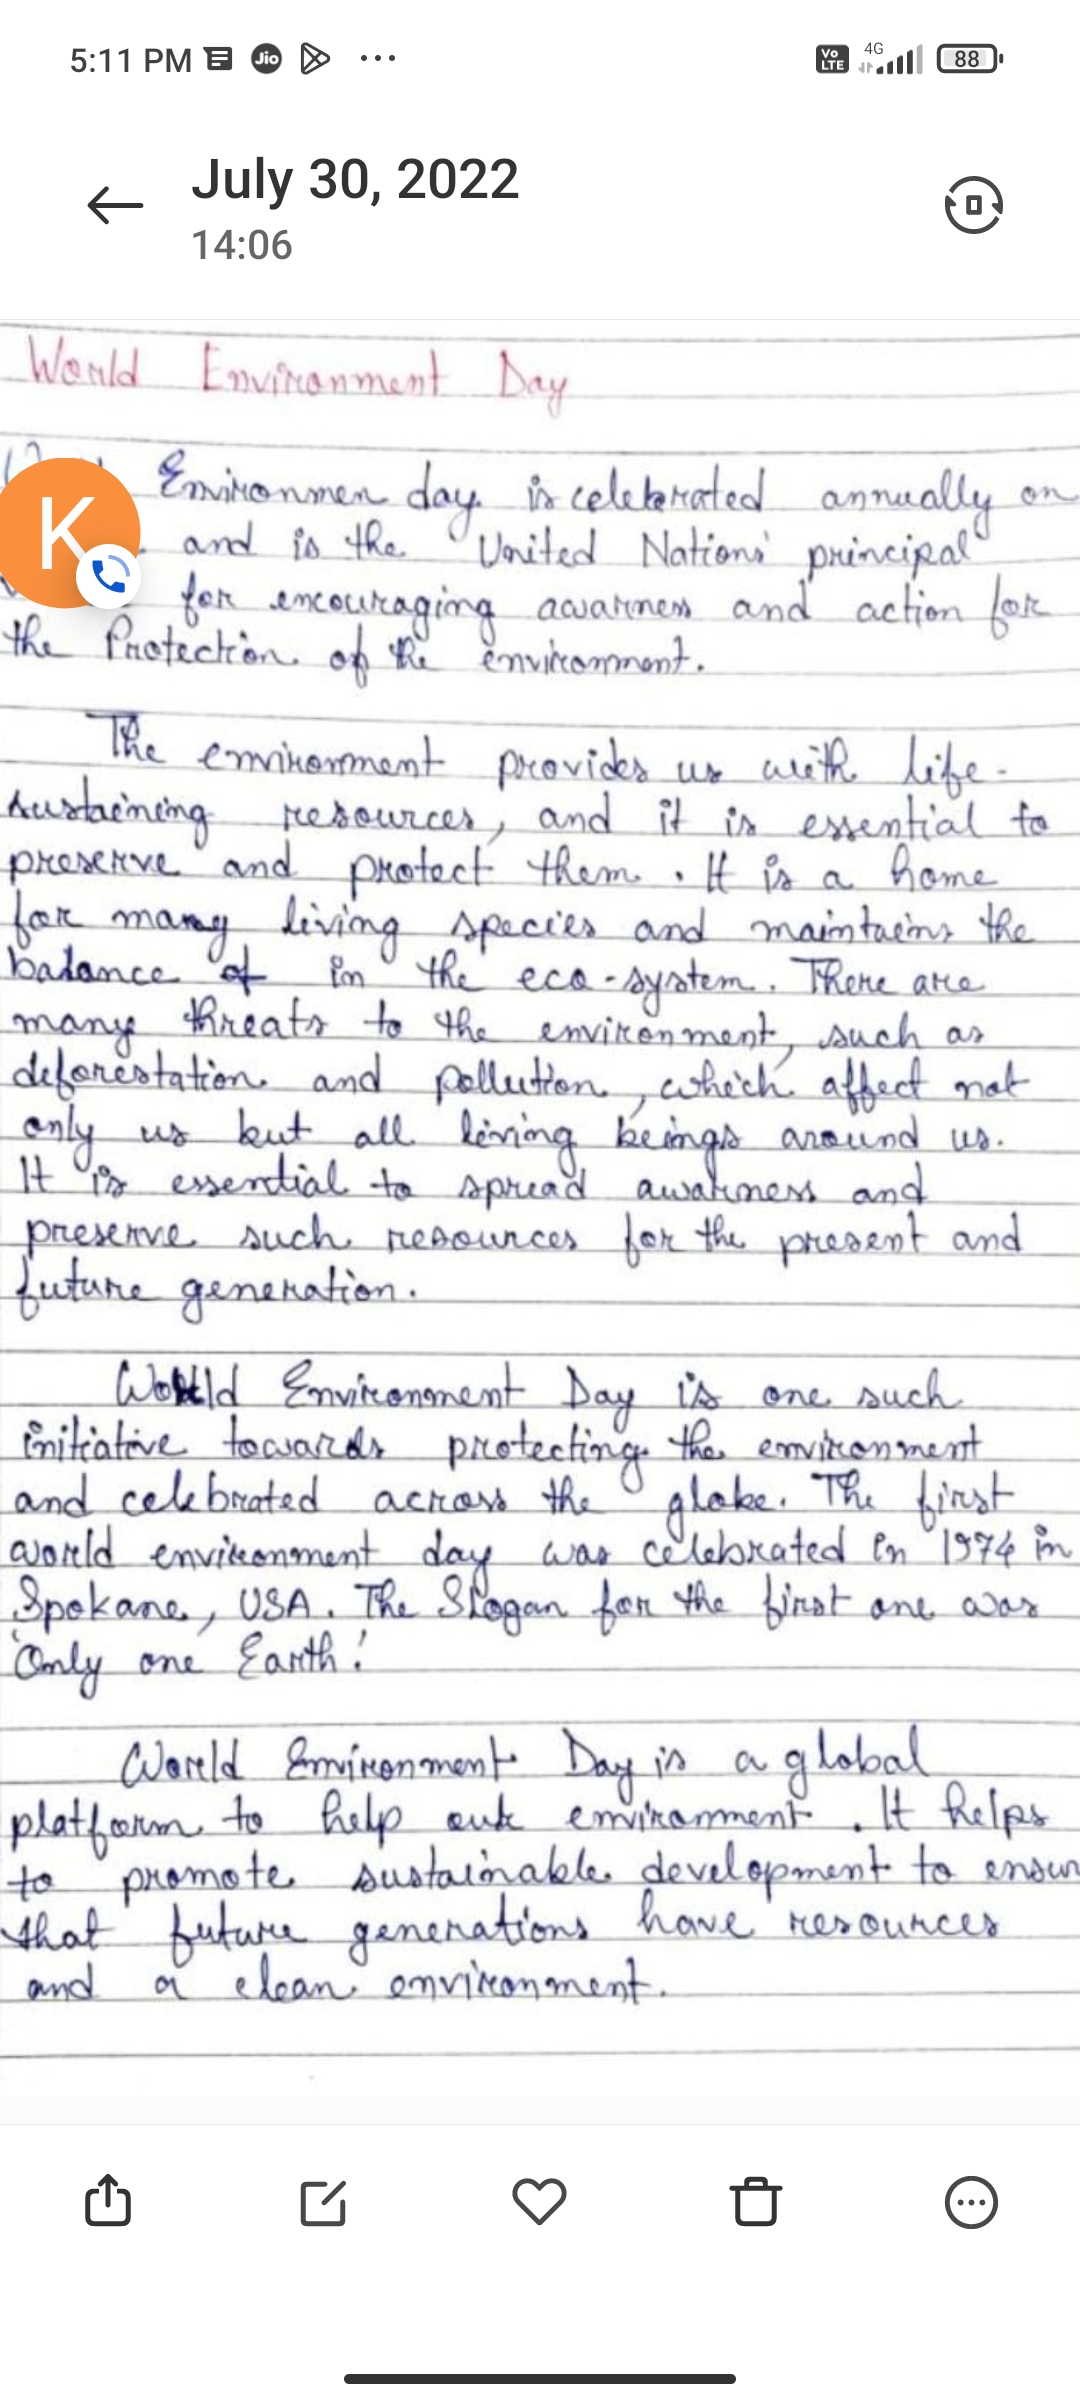 5:11 PM Jio ... Vo LTE 4G 88
July 30, 2022
14:06
World Environment Day
Environmen day. is celebrated annually on
and is the United Nations' principal
for encouraging awarness and action for
the Protection of the environment.
The environment provides us with life-
sustaining resources, and it is essential to
preserve and protect them. It is a home
for many living species and maintains the
balance of in the eco-system. There are
many threats to the environment, such as
deforestation and pollution, which affect not
only us but all living beings around us.
It is essential to spread awarness and
preserve such resources for the present and
future generation.
World Environment Day is one such
initiative towards protecting the environment
and celebrated across the globe. The first
world environment day was celebrated in 1974 in
Spokane, USA. The Slogan for the first one was
'Only one Earth!
World Environment Day is a global
platform to help our environment. It helps
to promote sustainable development to ensur
that future generations have resources
and a clean environment.
K